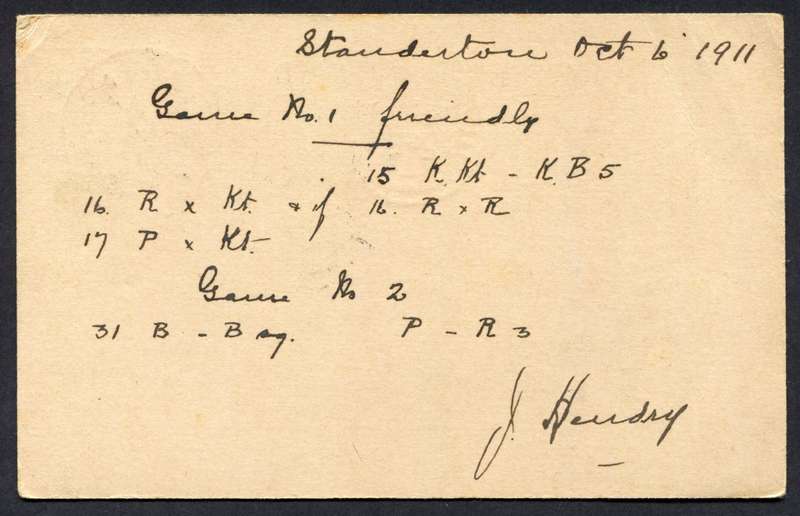 Standerton Oct 6 1911
Game No. 1 friendly
15 K. Kt - K. B 5
16. R x Kt. & if 16. R x R
17 P x Kt.
Game No 2
31 B - B sq. P - R 3
J. Hendry